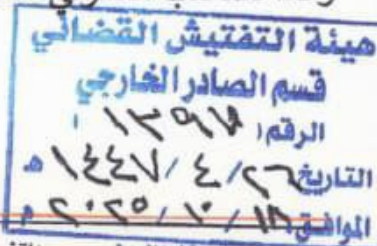 هيئة التفتيش القضائي
قسم الصادر الخارجي
الرقم( ١٣٩٧ )
التاريخ ٢٦ / ٤ / ١٤٤٧ هـ
الموافق: ١٨ / ١٠ / ٢٠٢٥ م